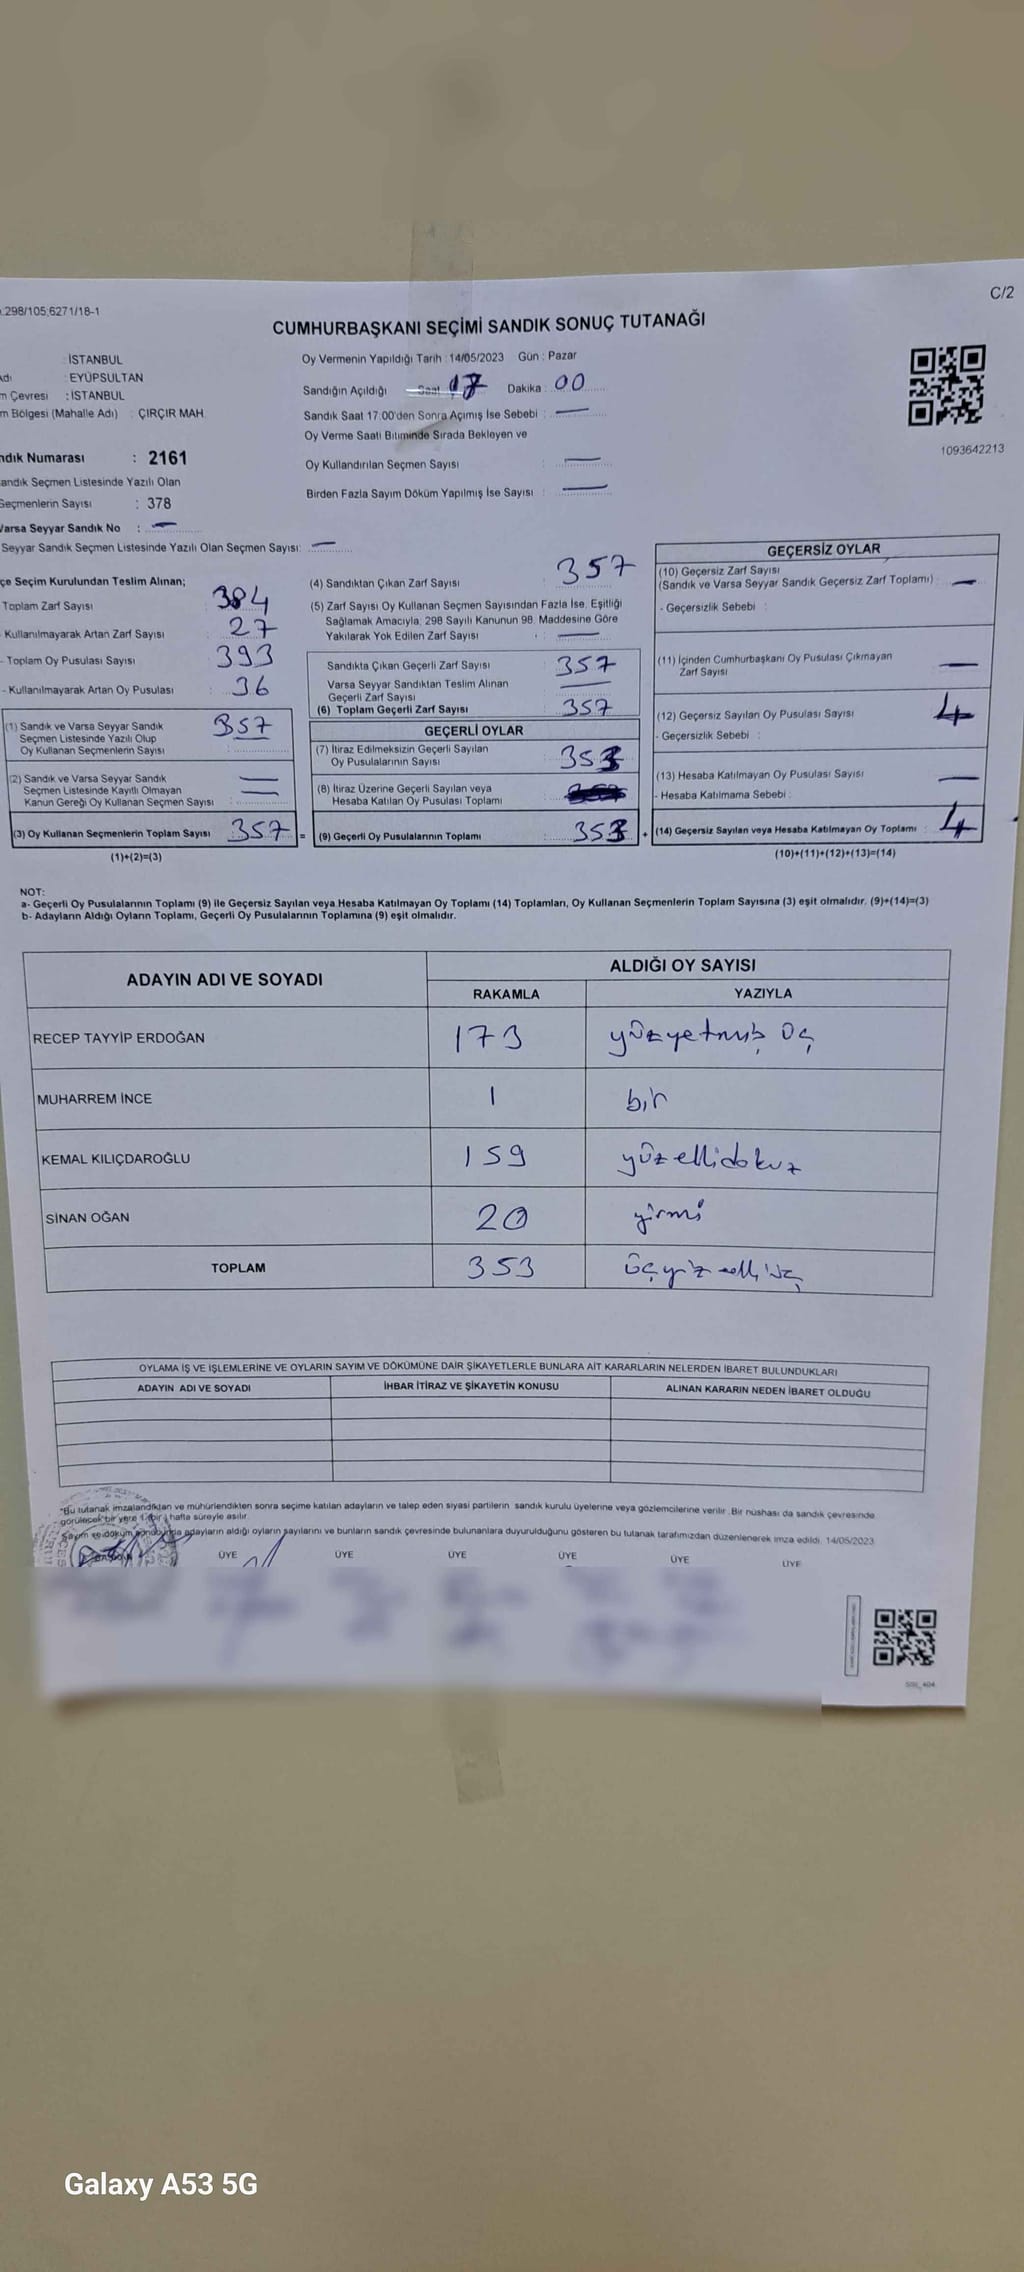 298/105;6271/18-1
C/2
CUMHURBAŞKANI SEÇİMİ SANDIK SONUÇ TUTANAĞI
: İSTANBUL
: EYÜPSULTAN
Çevresi : İSTANBUL
Bölgesi (Mahalle Adı) : ÇIRÇIR MAH.
Numarası : 2161
Seçmen Listesinde Yazılı Olan
Seçmenlerin Sayısı : 378
Varsa Seyyar Sandık No : —
Seyyar Sandık Seçmen Listesinde Yazılı Olan Seçmen Sayısı: —
Oy Vermenin Yapıldığı Tarih : 14/05/2023 Gün : Pazar
Sandığın Açıldığı Saat 17 Dakika : 00
Sandık Saat 17:00'den Sonra Açımış İse Sebebi : —
Oy Verme Saati Bitiminde Sırada Bekleyen ve
Oy Kullandırılan Seçmen Sayısı : —
Birden Fazla Sayım Döküm Yapılmış İse Sayısı : —
1093642213
Seçim Kurulundan Teslim Alınan;
Toplam Zarf Sayısı : 384
Kullanılmayarak Artan Zarf Sayısı : 27
- Toplam Oy Pusulası Sayısı : 393
- Kullanılmayarak Artan Oy Pusulası : 36
(1) Sandık ve Varsa Seyyar Sandık
Seçmen Listesinde Yazılı Olup
Oy Kullanan Seçmenlerin Sayısı : 357
(2) Sandık ve Varsa Seyyar Sandık
Seçmen Listesine Kayıtlı Olmayan
Kanun Gereği Oy Kullanan Seçmen Sayısı : —
(3) Oy Kullanan Seçmenlerin Toplam Sayısı : 357 =
(1)+(2)=(3)
(4) Sandıktan Çıkan Zarf Sayısı : 357
(5) Zarf Sayısı Oy Kullanan Seçmen Sayısından Fazla İse, Eşitliği
Sağlamak Amacıyla, 298 Sayılı Kanunun 98. Maddesine Göre
Yakılarak Yok Edilen Zarf Sayısı : —
Sandıkta Çıkan Geçerli Zarf Sayısı : 357
Varsa Seyyar Sandıktan Teslim Alınan
Geçerli Zarf Sayısı : —
(6) Toplam Geçerli Zarf Sayısı : 357
GEÇERLİ OYLAR
(7) İtiraz Edilmeksizin Geçerli Sayılan
Oy Pusulalarının Sayısı : 353
(8) İtiraz Üzerine Geçerli Sayılan veya
Hesaba Katılan Oy Pusulası Toplamı
(9) Geçerli Oy Pusulalarının Toplamı : 353 +
GEÇERSİZ OYLAR
(10) Geçersiz Zarf Sayısı
(Sandık ve Varsa Seyyar Sandık Geçersiz Zarf Toplamı) : —
- Geçersizlik Sebebi :
(11) İçinden Cumhurbaşkanı Oy Pusulası Çıkmayan
Zarf Sayısı —
(12) Geçersiz Sayılan Oy Pusulası Sayısı : 4
- Geçersizlik Sebebi :
(13) Hesaba Katılmayan Oy Pusulası Sayısı : —
- Hesaba Katılmama Sebebi :
(14) Geçersiz Sayılan veya Hesaba Katılmayan Oy Toplamı : 4
(10)+(11)+(12)+(13)=(14)
NOT:
a- Geçerli Oy Pusulalarının Toplamı (9) ile Geçersiz Sayılan veya Hesaba Katılmayan Oy Toplamı (14) Toplamları, Oy Kullanan Seçmenlerin Toplam Sayısına (3) eşit olmalıdır. (9)+(14)=(3)
b- Adayların Aldığı Oyların Toplamı, Geçerli Oy Pusulalarının Toplamına (9) eşit olmalıdır.
ADAYIN ADI VE SOYADI ALDIĞI OY SAYISI
RAKAMLA YAZIYLA
RECEP TAYYİP ERDOĞAN 173 yüzyetmiş üç
MUHARREM İNCE 1 bir
KEMAL KILIÇDAROĞLU 159 yüzellidokuz
SİNAN OĞAN 20 yirmi
TOPLAM 353 üçyüz elli üç
OYLAMA İŞ VE İŞLEMLERİNE VE OYLARIN SAYIM VE DÖKÜMÜNE DAİR ŞİKAYETLERLE BUNLARA AİT KARARLARIN NELERDEN İBARET BULUNDUKLARI
ADAYIN ADI VE SOYADI İHBAR İTİRAZ VE ŞİKAYETİN KONUSU ALINAN KARARIN NEDEN İBARET OLDUĞU
"Bu tutanak imzalandıktan ve mühürlendikten sonra seçime katılan adayların ve talep eden siyasi partilerin sandık kurulu üyelerine veya gözlemcilerine verilir. Bir nüshası da sandık çevresinde
görülecek bir yere 1 (bir) hafta süreyle asılır.
Sayım ve döküm sonucunda adayların aldığı oyların sayılarını ve bunların sandık çevresinde bulunanlara duyurulduğunu gösteren bu tutanak tarafımızdan düzenlenerek imza edildi. 14/05/2023
ÜYE ÜYE ÜYE ÜYE ÜYE ÜYE
Galaxy A53 5G